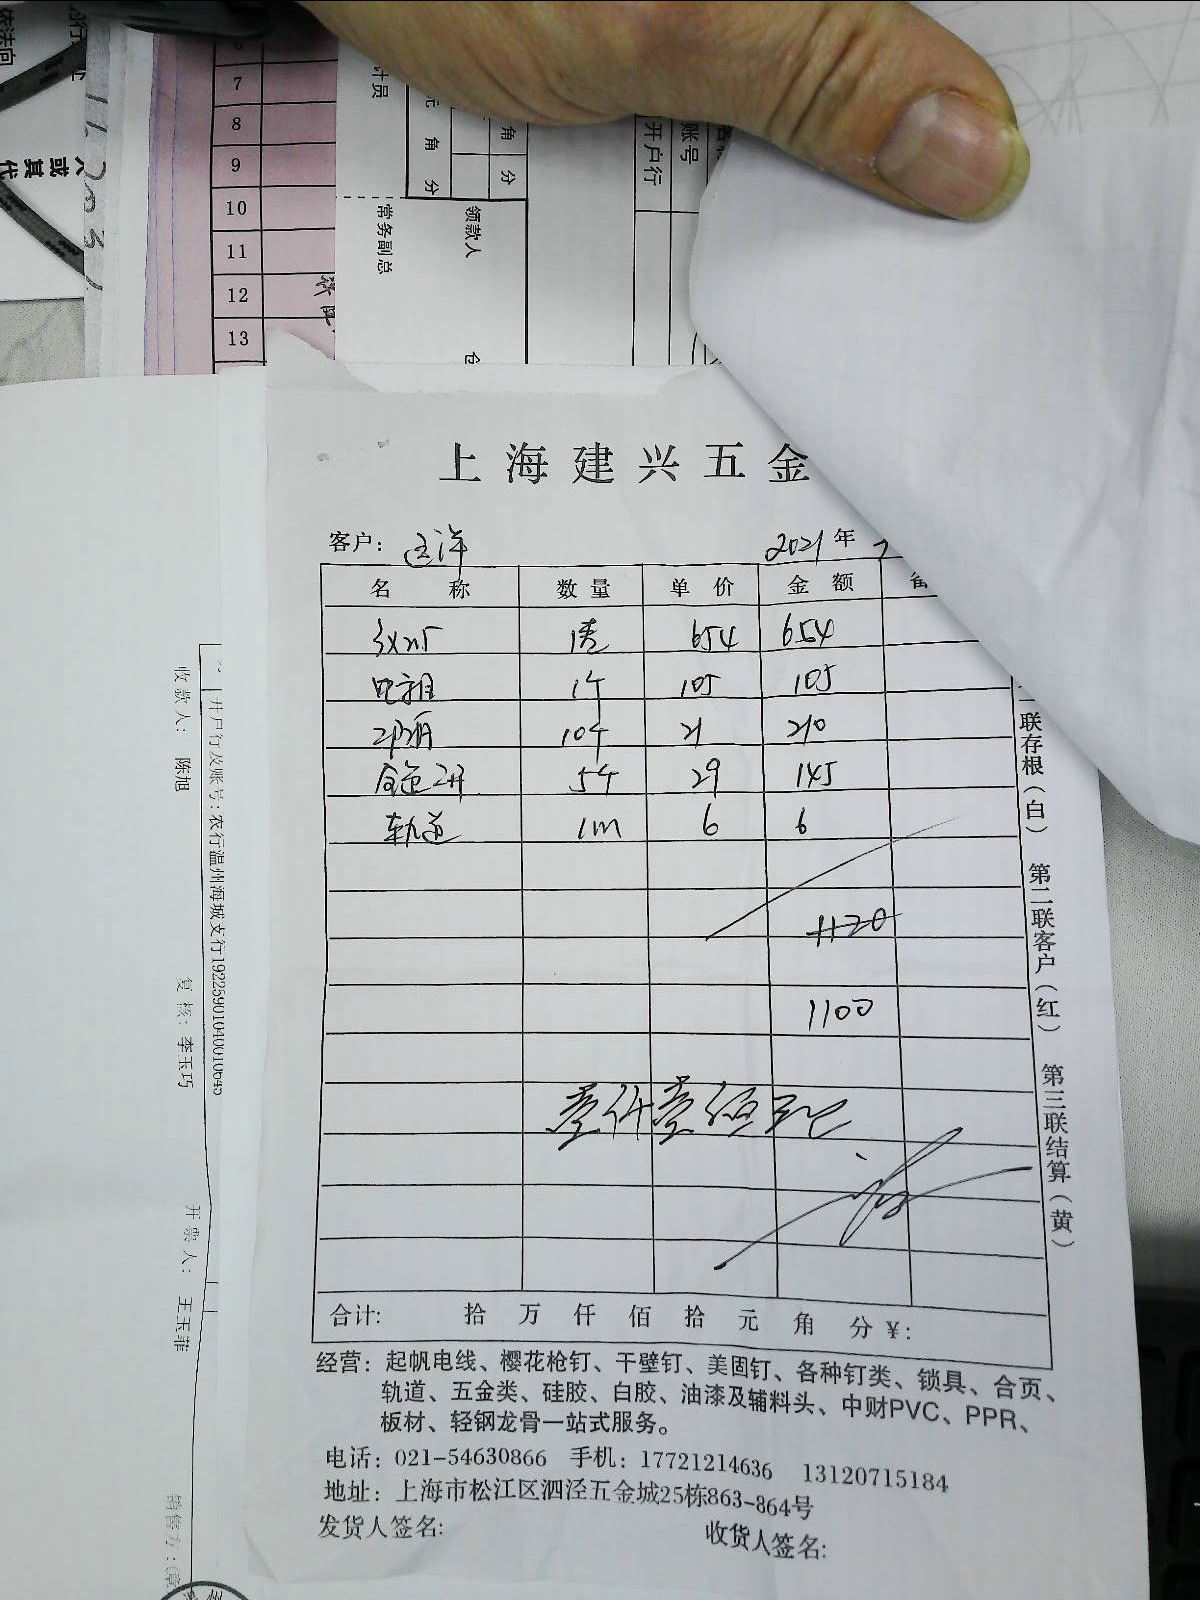 7
8
9
10
11
12
13
计员
元 角 分
角 分
领款人
常务副总
账号
开户行
人或其代
上海建兴五金
客户: 汪洋 2021年
名 称 数量 单价 金额 备
3x25 1卷 654 654
电箱 1个 105 105
210
10个 21
金色二开 5个 29 145
轨道 1m 6 6
1120
1100
壹仟壹佰元
合计: 拾 万 仟 佰 拾 元 角 分 ¥:
经营: 起帆电线、樱花枪钉、干壁钉、美固钉、各种钉类、锁具、合页、
轨道、五金类、硅胶、白胶、油漆及辅料头、中财PVC、PPR、
板材、轻钢龙骨一站式服务。
电话: 021-54630866 手机: 17721214636 13120715184
地址: 上海市松江区泗泾五金城25栋863-864号
发货人签名: 收货人签名:
联存根(白) 第二联客户(红) 第三联结算(黄)
开户行及账号:农行温州海城支行19225901040010645
收款人: 陈旭 复核: 李玉巧 开票人: 王玉菲 销售方:(章